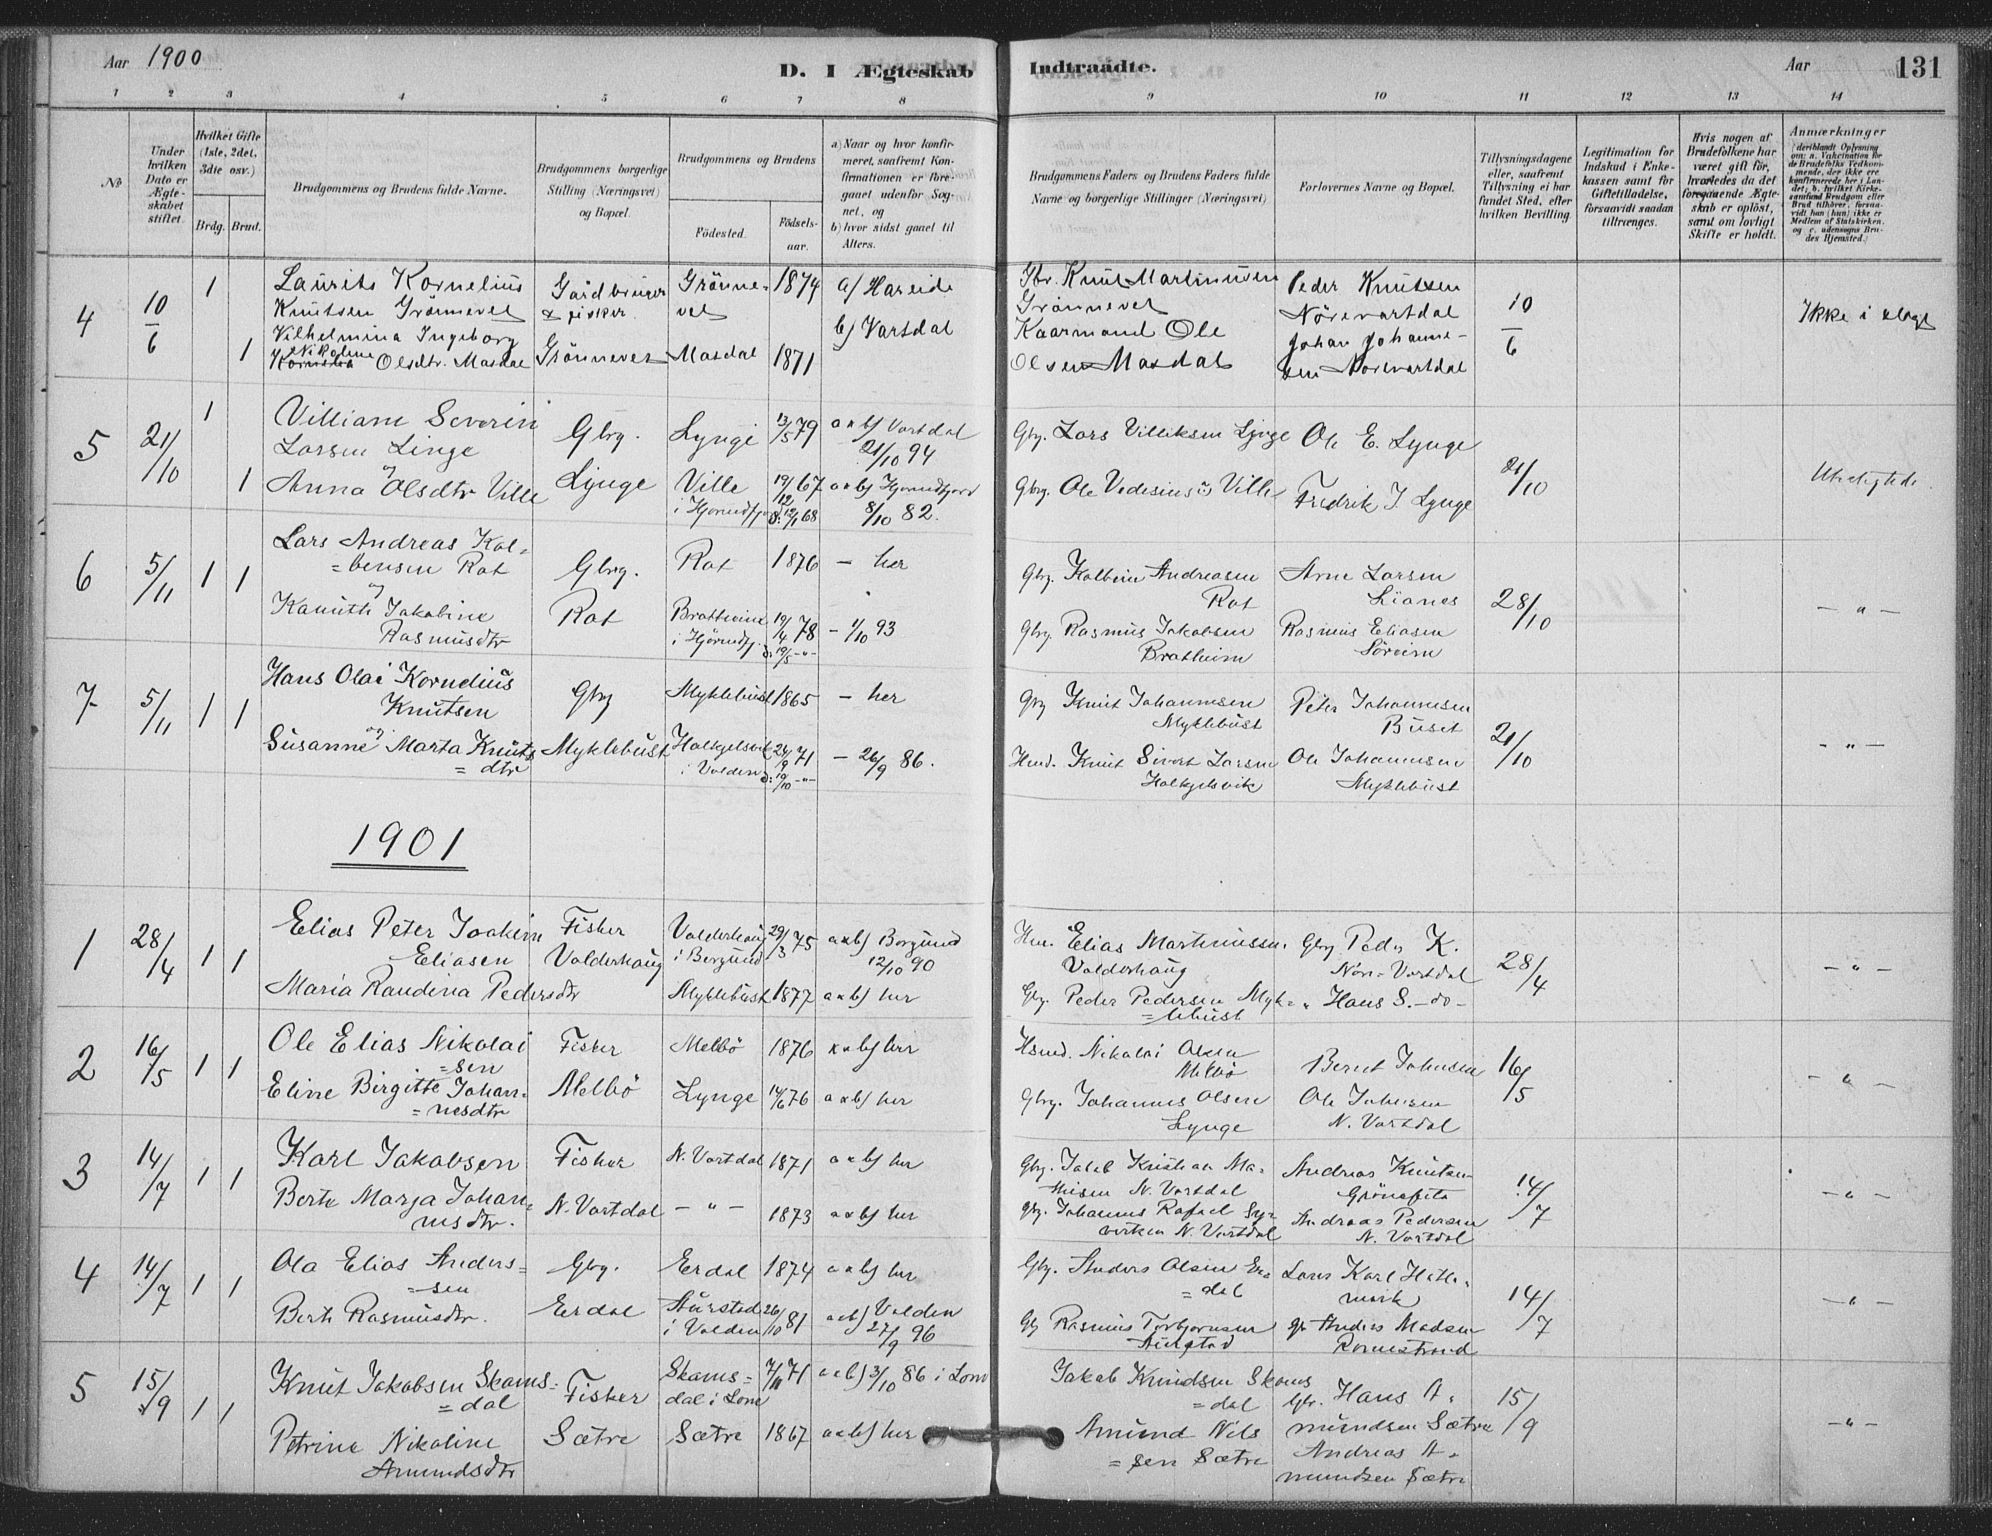 Aar 1900
D. I Ægteskab Indtraadte.
Aar 131
1 2 3 4 5 6 7 8 9 10 11 12 13 14
No
Under hvilken Dato er Ægteskabet stiftet.
Hvilket Gifte (1ste, 2det, 3die osv.)
Brdg. Brud.
Brudgommens og Brudens fulde Navne.
Brudgommens borgerlige Stilling (Næringsvei) og Bopæl.
Brudgommens og Brudens
Födested. Födselsaar.
a) Naar og hvor konfirmeret, saafremt Konfirmationen er foregaaet udenfor Sognet, og
b) hvor sidst gaaet til Alters.
Brudgommens Faders og Brudens Faders fulde Navne og borgerlige Stillinger (Næringsvei)
Forlovernes Navne og Bopæl.
Tillysningsdagene eller, saafremt Tillysning ei har fundet Sted, efter hvilken Bevilling.
Legitimation for Indskud i Enkekassen samt for Giftetilladelse, forsaavidt saadan tiltrænges.
Hvis nogen af Brudefolkene har været gift för, hvorledes da det foregaaende Ægteskab er oplöst, samt om lovligt Skifte er holdt.
Anmærkninger
4 10/6 1 Laurits Kornelius Knutsen Grönnevet Gardbruger & fisker Grönnevet 1874 a) Hareide b) Vartdal Gbr. Knut Martinusen Grönnevet Peder Knutsen Nörevartdal 10/6 Ikke i slægt
1 Vilhelmina Ingeborg Nikoline Olsdtr. Masdal Grönnevet Masdal 1871 Kaarmand Ole Olsen Masdal Johan Johannesen Nörevartdal
5 21/10 1 Villiam Severin Larsen Linge Gbrg. Lynge 13/5 79 a & b) Vartdal 21/10 94 Gbg. Lars Villiksen Lynge Ole E. Lynge 21/10 Ubeslegtede
1 Anna Olsdtr Ville Lynge Ville i Hjörundfj. 19/12 67 d: 12/1 68 a & b) Hjörundfjord 8/10 82. Gbrg. Ole Vedesius Ville Fredrik J. Lynge
6 5/11 1 1 Lars Andreas Kolbensen Rat Gbrg. Rat 1876 — her Gbrg. Kolbein Andreasen Rat Arne Larsen Lianes 28/10 — " —
og Kanuth Jakobine Rasmusdtr Rat Brattheim i Hjörundfj. 19/4 78 d: 19/5 —"— — 1/10 93 Gbrg. Rasmus Jakobsen Bratheim Rasmus Eliasen Söreim
7 5/11 1 1 Hans Olai Kornelius Knutsen Gbrg Myklebust 1865 — her Gbrg Knut Johannesen Myklebust Peter Johannesen Buset 21/10 — " —
og Susanne Marta Knutsdtr Myklebust Halkjelsvik i Volden 24/9 71 d: 19/10 —"— — 26/9 86. Hmd. Knut Sivert Larsen Halkjelsvik Ole Johannesen Myklebust
1901
1 28/4 1 1 Elias Peter Joakim Eliasen Fisker Valderhaug Valderhaug i Borgund 29/3 75 a & b) Borgund 12/10 90 Hm. Elias Martinussen Valderhaug Gbrg Peder K. Nörе-Vartdal 28/4 — " —
Maria Randina Pedersdtr Myklebust 1877 a & b) her Gbrg. Peder Pedersen Myklebust " Hans S. — do —
2 16/5 1 1 Ole Elias Nikolaisen Fisker Melbö 1876 a & b) her Hsmd. Nikolai Olsen Melbö Bernt Johnsen 16/5 — " —
Eline Birgitte Johannesdtr Melbö Lynge 14/6 76 a & b) her Gbrg. Johannes Olsen Lynge Ole Johnsen N. Vartdal
3 14/7 1 1 Karl Jakobsen Fisker N. Vartdal 1871 a & b) her Gbg. Jakob Kristian Mathisen N. Vartdal Andreas Knutsen Grönefleta 14/7 — " —
Berte Marja Johannesdtr. N. Vartdal — " — 1873 a & b) her Gbg. Johannes Rafael Syvertsen N. Vartdal Andreas Pedersen N. Vartdal
4 14/7 1 1 Ola Elias Anderssen Gbg. Erdal 1874 a & b) her Gbg. Anders Olsen Erdal Lars Karl Hatlemark 14/7 — " —
Berth Rasmusdtr. Eerdal Aurstad i Volden 26/10 81 a & b) Volden 27/9 96 Gbg Rasmus Torbjornsen Aurstad gb Anders Madsen Romestrand
5 15/9 1 1 Knut Jakobsen Skamsdal Fisker Skamsdal i Lom 7/11 71 a & b) 3/10 86 i Lom Jakob Knudsen Skamsdal Gbr. Hans Amundsen Sætre 15/9 — " —
Petrine Nikoline Amundsdtr Sætre Sætre 1867 a & b) her Amund Nilssen Sætre Andreas Amundsen Sætre